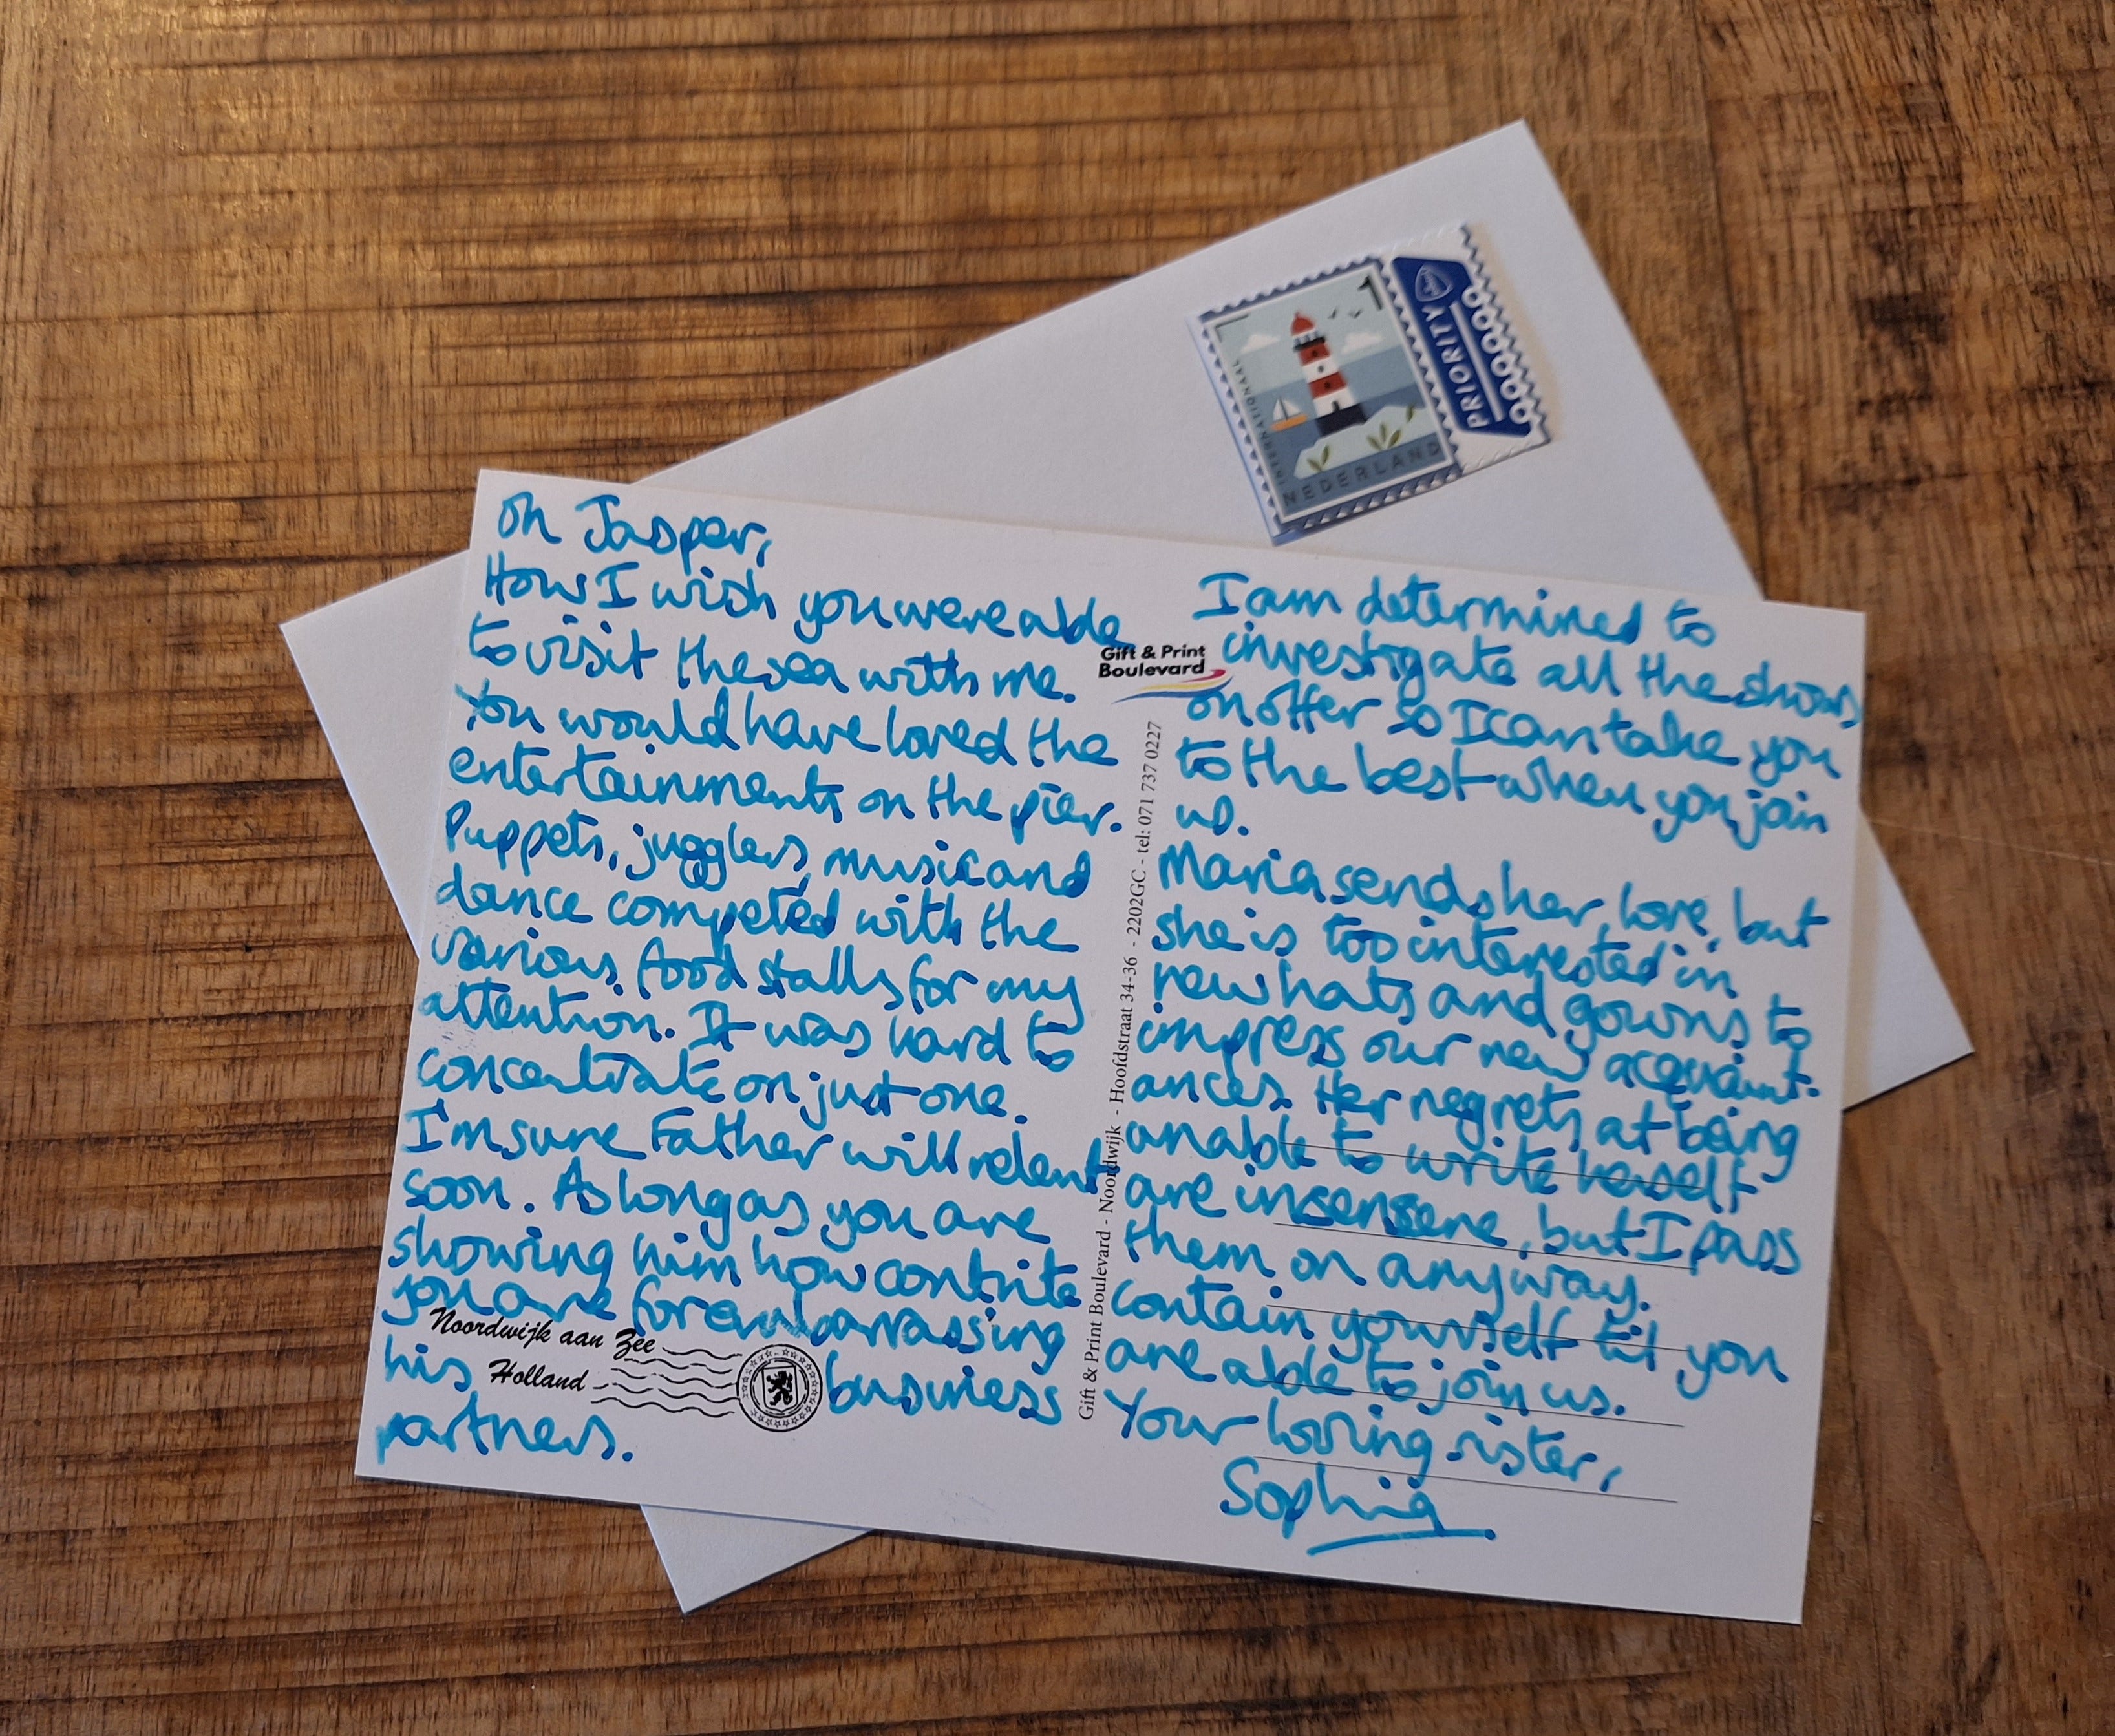 1
INTERNATIONAAL
NEDERLAND
PRIORITY
Oh Jasper,
How I wish you were able
to visit the sea with me.
You would have loved the
entertainments on the pier.
Puppets, jugglers, music and
dance competed with the
various food stalls for my
attention. It was hard to
concentrate on just one.
I'm sure Father will relent
soon. As long as you are
showing him how contrite
you are for embarrassing
his business
partners.
Noordwijk aan Zee
Holland
Gift & Print
Boulevard
Gift & Print Boulevard - Noordwijk - Hoofdstraat 34-36 - 2202GC - tel: 071 737 0227
I am determined to
investigate all the shows
on offer so I can take you
to the best when you join
us.
Maria sends her love, but
she is too interested in
new hats and gowns to
impress our new acquaint-
ances. Her regrets at being
unable to write herself
are insensere, but I pass
them on anyway.
Contain yourself til you
are able to join us.
Your loving sister,
Sophia